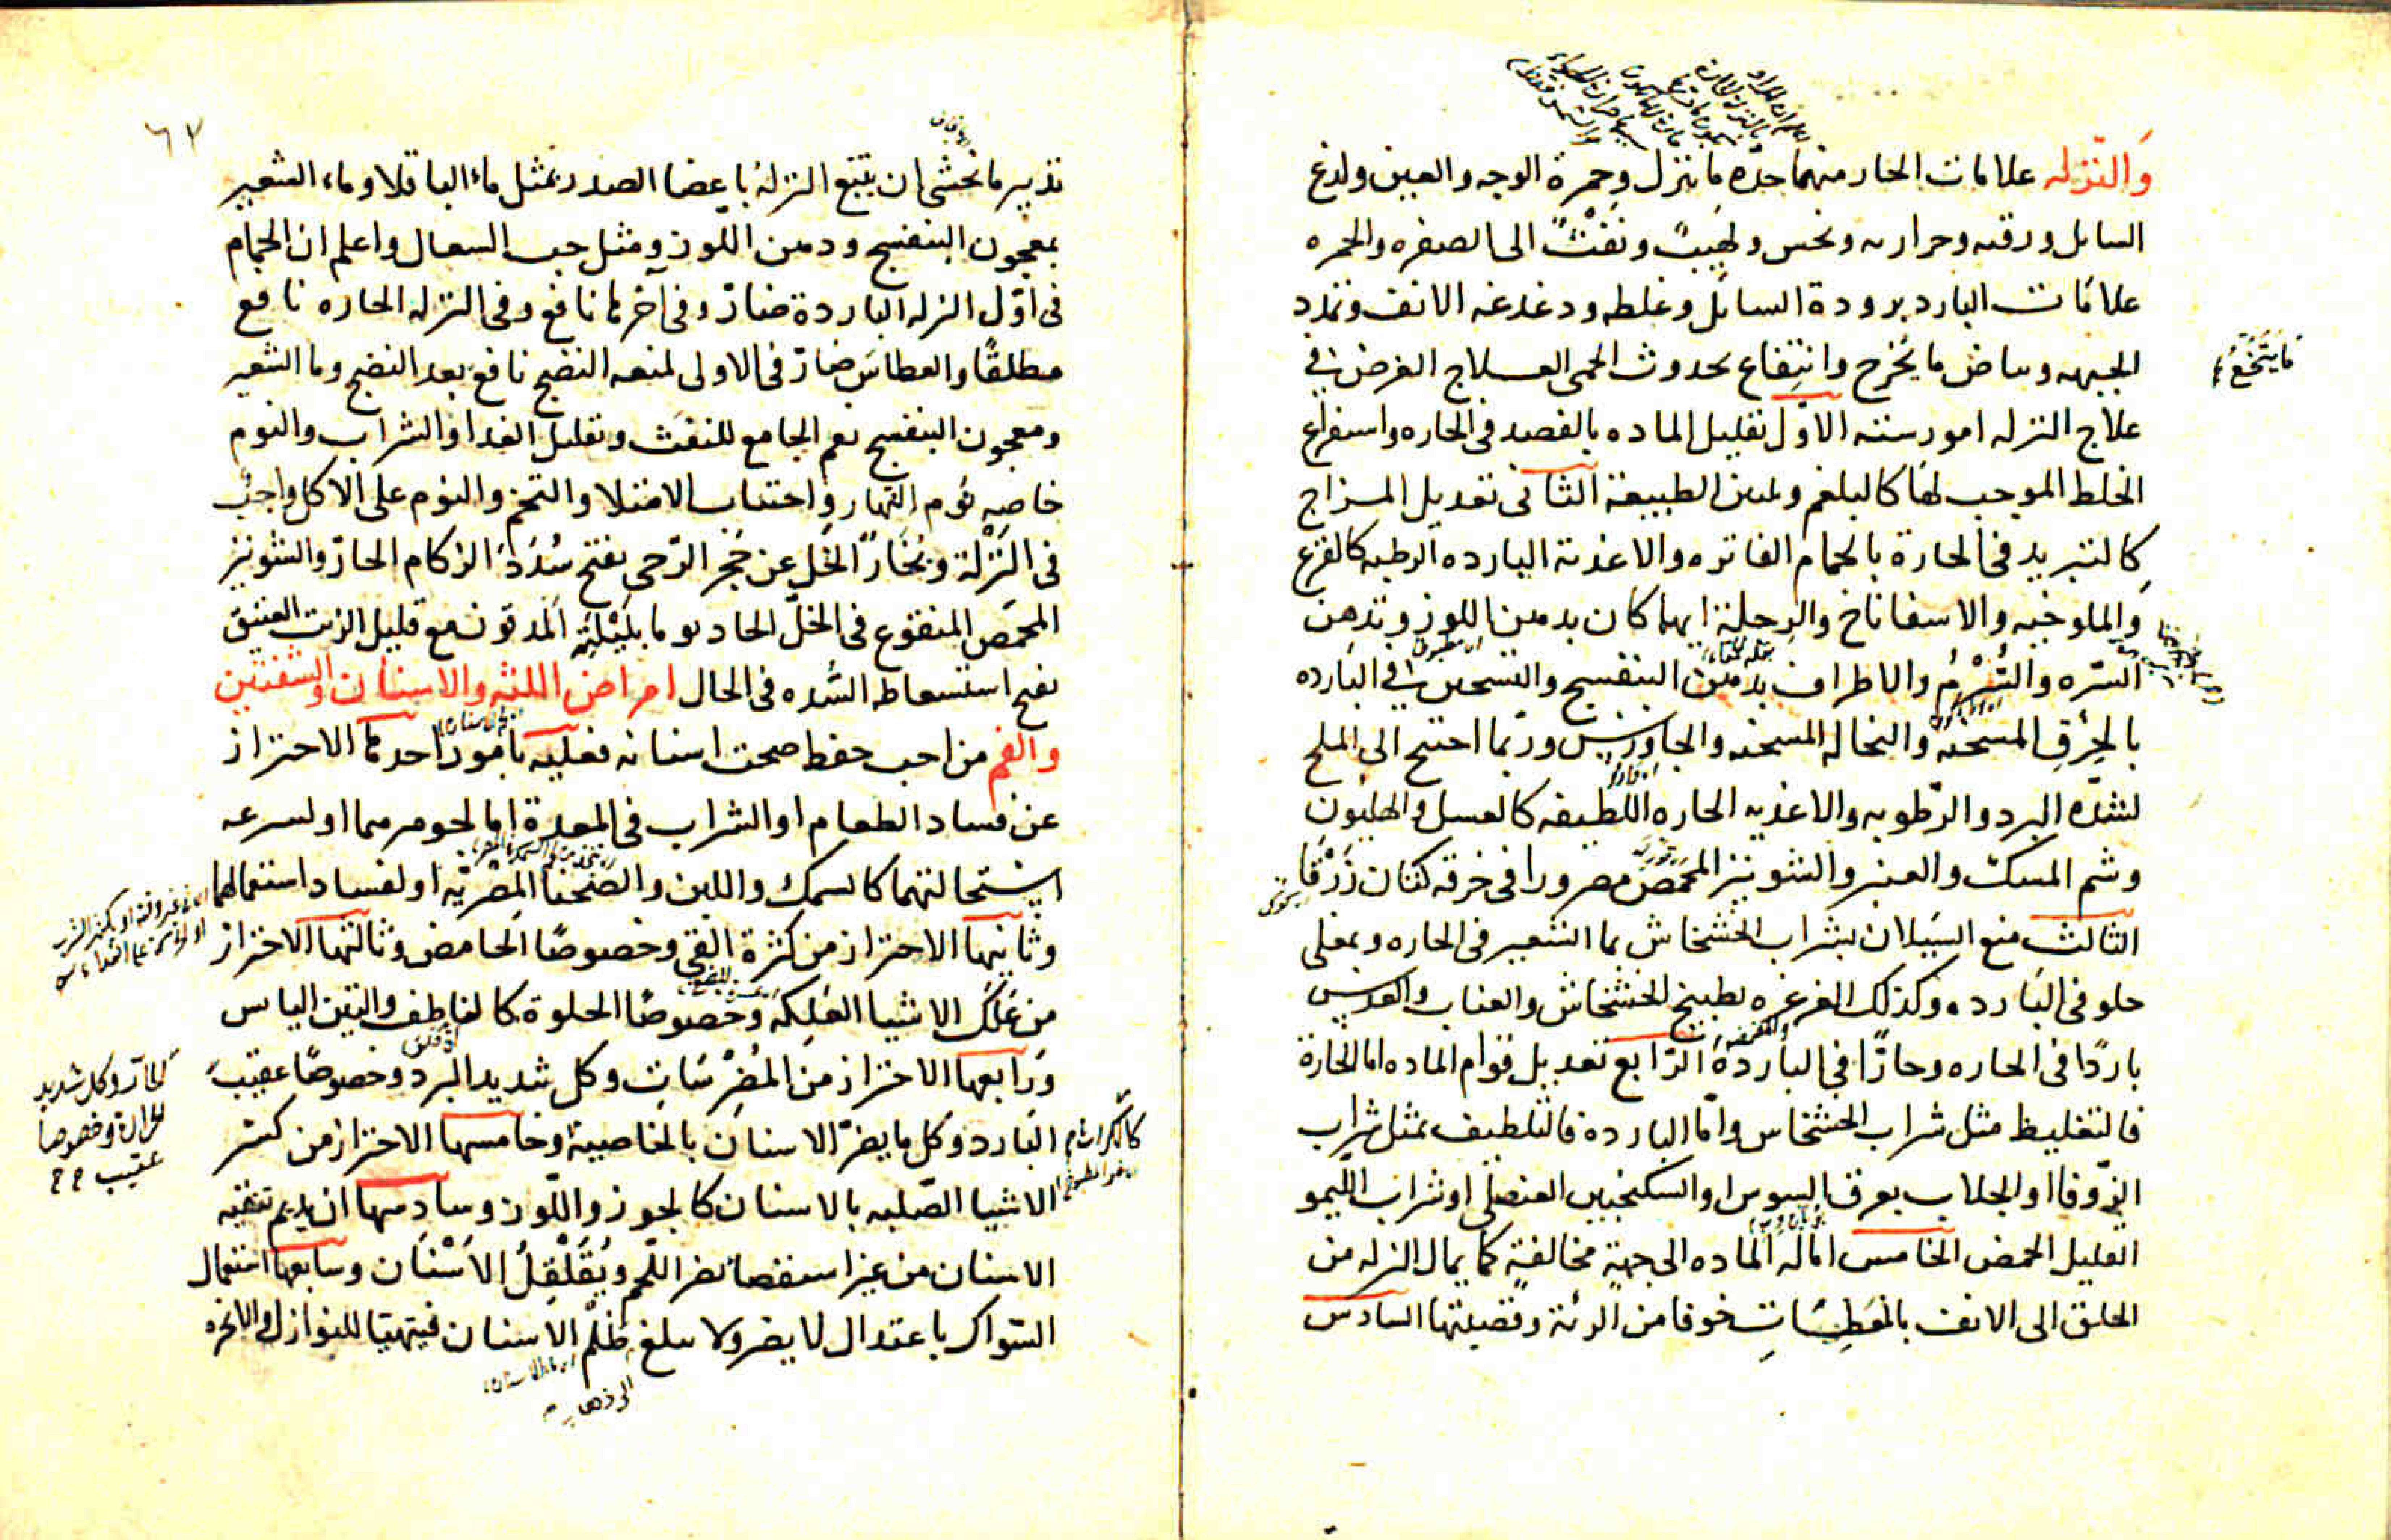 والنزله علامات الحار منهما حدة ما ينزل وحمرة الوجه والعين ولدغ
السايل ورقته وحرارته ونخس ولهيب ونفث الى الصفره والحمره
علامات البارد برودة السائل وغلظه ودغدغه الانف وتمدد
الجبهه وبياض ما يخرج وانتفاع بحدوث الحمى العلاج الغرض في
ما يتنخع
علاج النزله امور سته الاول تقليل الماده بالفصد في الحاره واستفراغ
الخلط الموجب لها كالبلغم وتليين الطبيعة الثاني تعديل المزاج
كالتبريد في الحارة بالحمام الفاتره والاغذية البارده الرطبه كالقرع
والملوخيه والاسفاناخ والرجلة ايها كان بدهن اللوز وتدهن
السره والشرم والاطراف بدهن البنفسج والتسخين في البارده
بالخرق المسخنة والنخاله المسخنه والجاورس وربما احتيج الى الملح
لشدة البرد والرطوبه والاغذيه الحاره اللطيفه كالعسل والهليون
وشم المسك والعنبر والشونيز المحمص مصرورا في خرقه كتان زرقا
الثالث منع السيلان بشراب الخشخاش بما الشعير في الحاره وبمغلى
حلو في البارده وكذلك الغرغره بطبيخ الخشخاش والعناب والعدس
باردا في الحاره وحارا في الباردة الرابع تعديل قوام الماده اما الحارة
فالتغليظ مثل شراب الخشخاس واما البارده فالتلطيف بمثل شراب
الزوفا او الجلاب بعرق السوس او السكنجبين العنصلي او شراب الليمو
القليل الحمض الخامس امالة الماده الى جهة مخالفة كما يمال النزله من
الحلق الى الانف بالمعطسات خوفا من الرئة وقصبتها السادس
٦٢
تدبير ما يخشى ان يتبع النزلة باعضا الصدر بمثل ماء الباقلا وماء الشعير
بمعجون البنفسج ودهن اللوز ومثل حب السعال واعلم ان الحمام
في اول النزله الباردة ضار وفي آخرها نافع وفي النزله الحاره نافع
مطلقا والعطاس ضار في الاولى لمنعه النضج نافع بعد النضج وما الشعير
ومعجون البنفسج نعم الجامع للنفث وتقليل الغدا والشراب والنوم
خاصه نوم النهار واجتناب الامتلا والتخم والنوم على الاكل واجب
في النزلة وبخار الخل عن حجر الرحى يفتح سدد الزكام الحار والشونيز
المحمص المنقوع في الخل الحاد يوما بليلته المدقوق مع قليل الزيت العتيق
نفح استسعاطه السده في الحال امراض اللثه والاسنان والشفتين
والفم من احب حفظ صحت اسنانه فعليه بامور احدها الاحتراز
عن فساد الطعام او الشراب في المعدة اما لجوهرهما او لسرعه
استحالتهما كالسمك واللبن والصحنا المصرية او لفساد استعمالهما
وثانيها الاحتراز من كثرة القى وخصوصا الحامض وثالثها الاحتراز
من علك الاشيا العلكه وخصوصا الحلوة كالناطف والتين اليابس
ورابعها الاحتراز من المضرسات وكل شديد البرد وخصوصا عقيب
الحار وكل شديد
الحرارة وخصوصا
عقيب
البارد وكل ما يضر الاسنان بالخاصية وخامسها الاحتراز من كسر
كالكراث
الاشيا الصلبه بالاسنان كالجوز واللوز وسادسها ان يديم تنقيه
الاسنان من غير استقصا يضر اللحم ويقلقل الاسنان وسابعها استعمال
السواك باعتدال لا يضر ولا يبلغ ظلم الاسنان فيتهيا للنوازل والابخره